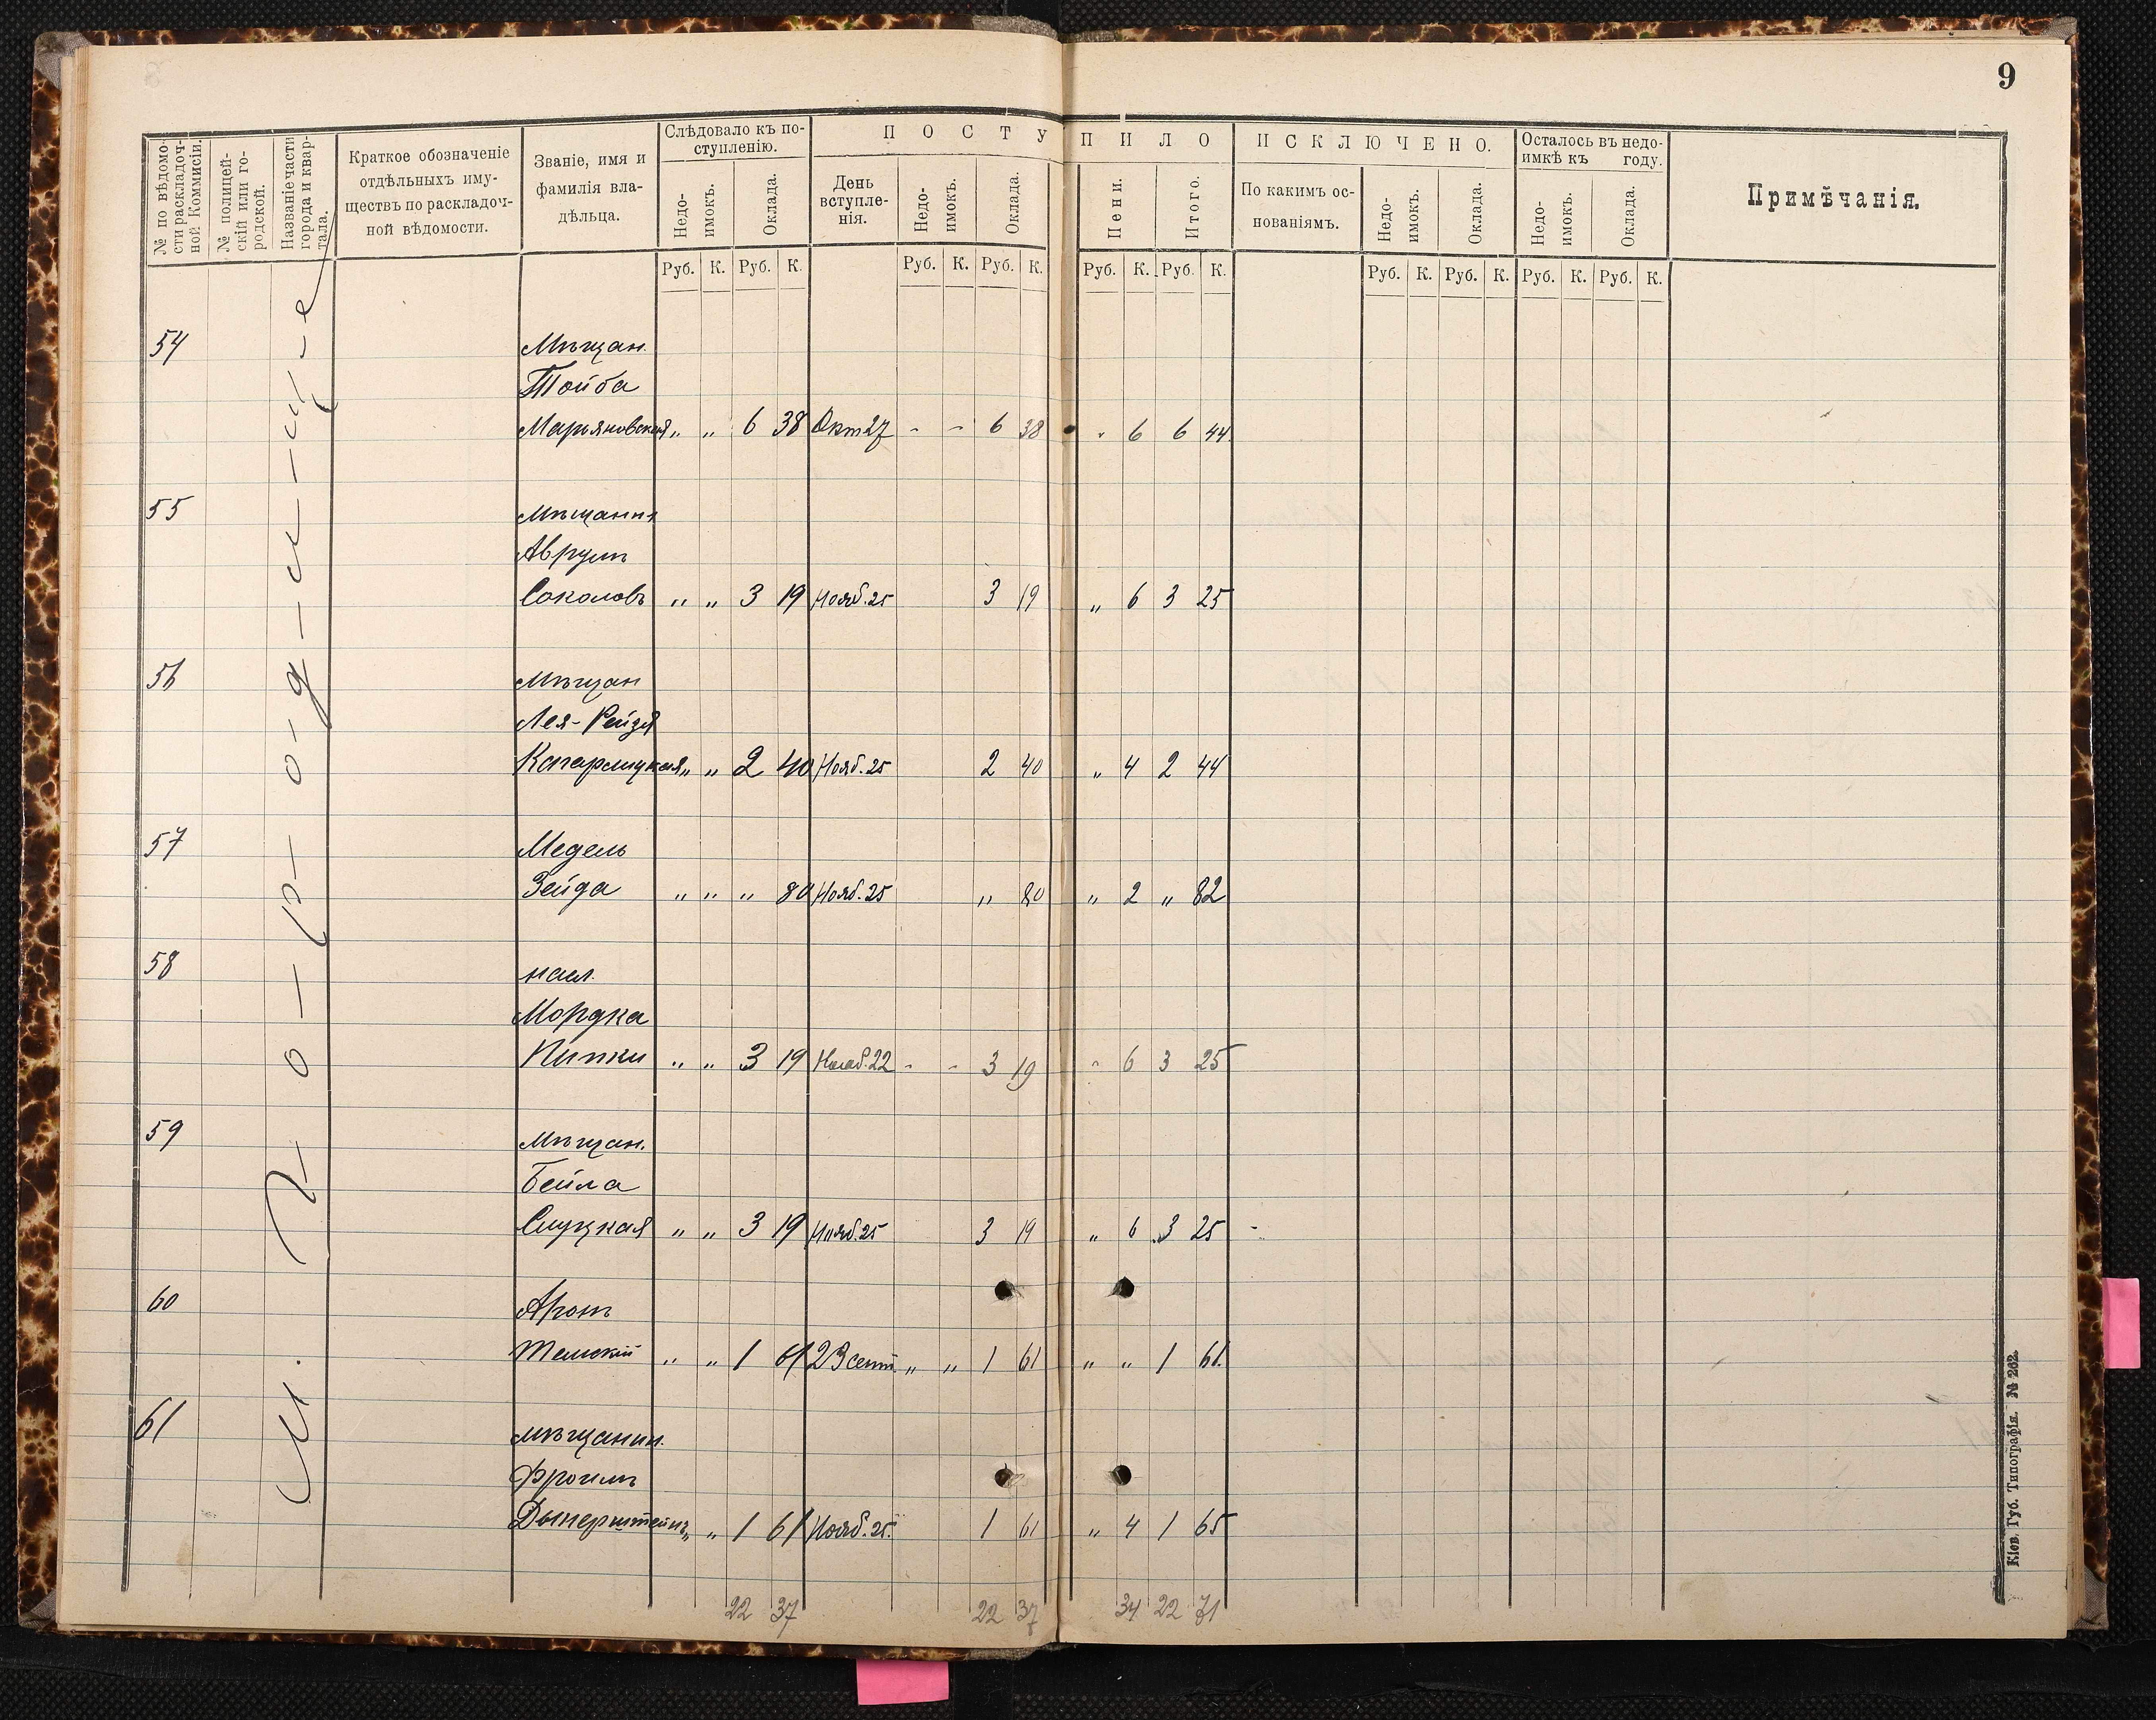 9
№ по вѣдомо-
сти раскладоч-
ной Коммисіи.
№ полицей-
скій или го-
родской.
Названіе части
города и квар-
тала.
Краткое обозначеніе
отдѣльныхъ иму-
ществъ по раскладоч-
ной вѣдомости.
Званіе, имя и
фамилія вла-
дѣльца.
Слѣдовало къ по-
ступленію.
Недо-
имокъ.
Оклада.
ПОСТУПИЛО
День
вступле-
нія.
Недо-
имокъ.
Оклада.
Пени.
Итого.
ИСКЛЮЧЕНО.
По какимъ ос-
нованіямъ.
Недо-
имокъ.
Оклада.
Осталось въ недо-
имкѣ къ году.
Недо-
имокъ.
Оклада.
Примѣчанія.
Руб. К. Руб. К. Руб. К. Руб. К. Руб. К. Руб. К. Руб. К. Руб. К. Руб. К. Руб. К.
М. Г-о-р-о-д-и-щ-е
54 Мѣщан.
Тойба
Марьяновская „ „ 6 38 Окт 27 - - 6 38 „ 6 6 44
55 Мѣщанин
Аврумъ
Соколовъ „ „ 3 19 Нояб. 25 3 19 „ 6 3 25
56 Мѣщан
Лея-Рейзя
Кагарлицкая „ „ 2 40 Нояб. 25 2 40 „ 4 2 44
57 Медель
Зейда „ „ „ 80 Нояб. 25 „ 80 „ 2 „ 82
58 насл.
Мордка
Пипки „ „ 3 19 Нояб. 22 - - 3 19 „ 6 3 25
59 Мѣщан.
Бейла
Слуцкая „ „ 3 19 Нояб. 25 3 19 „ 6 3 25
60 Аронъ
„ „ 1 61 23 сент. „ „ 1 61 „ „ 1 61.
61 мѣщанин.
Фроимъ
„ „ 1 61 Нояб. 25. 1 61 „ 4 1 65
22 37 22 37 34 22 71
Кіев. Губ. Типографія. № 262.